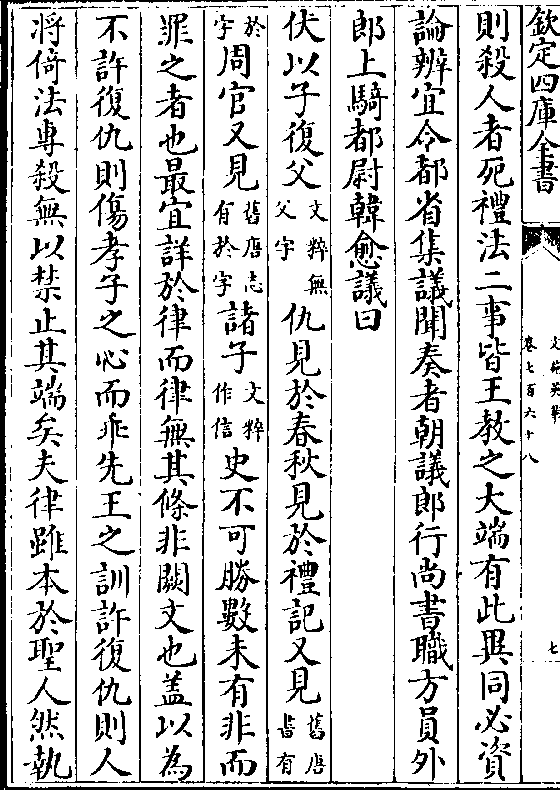 欽定四庫全書
文苑英華
卷七百六十八
七
則殺人者死禮法二事皆王教之大端有此異同必資
論辨宜令都省集議聞奏者朝議郎行尚書職方員外
郎上騎都尉韓愈議曰
伏以子復父文粹無父字仇見於春秋見於禮記又見舊唐書有
於字周官又見舊唐志有於字諸子文粹作信史不可勝數未有非而
罪之者也最宜詳於律而律無其條非闕文也盖以為
不許復仇則傷孝子之心而乖先王之訓許復仇則人
將倚法專殺無以禁止其端矣夫律雖本於聖人然執